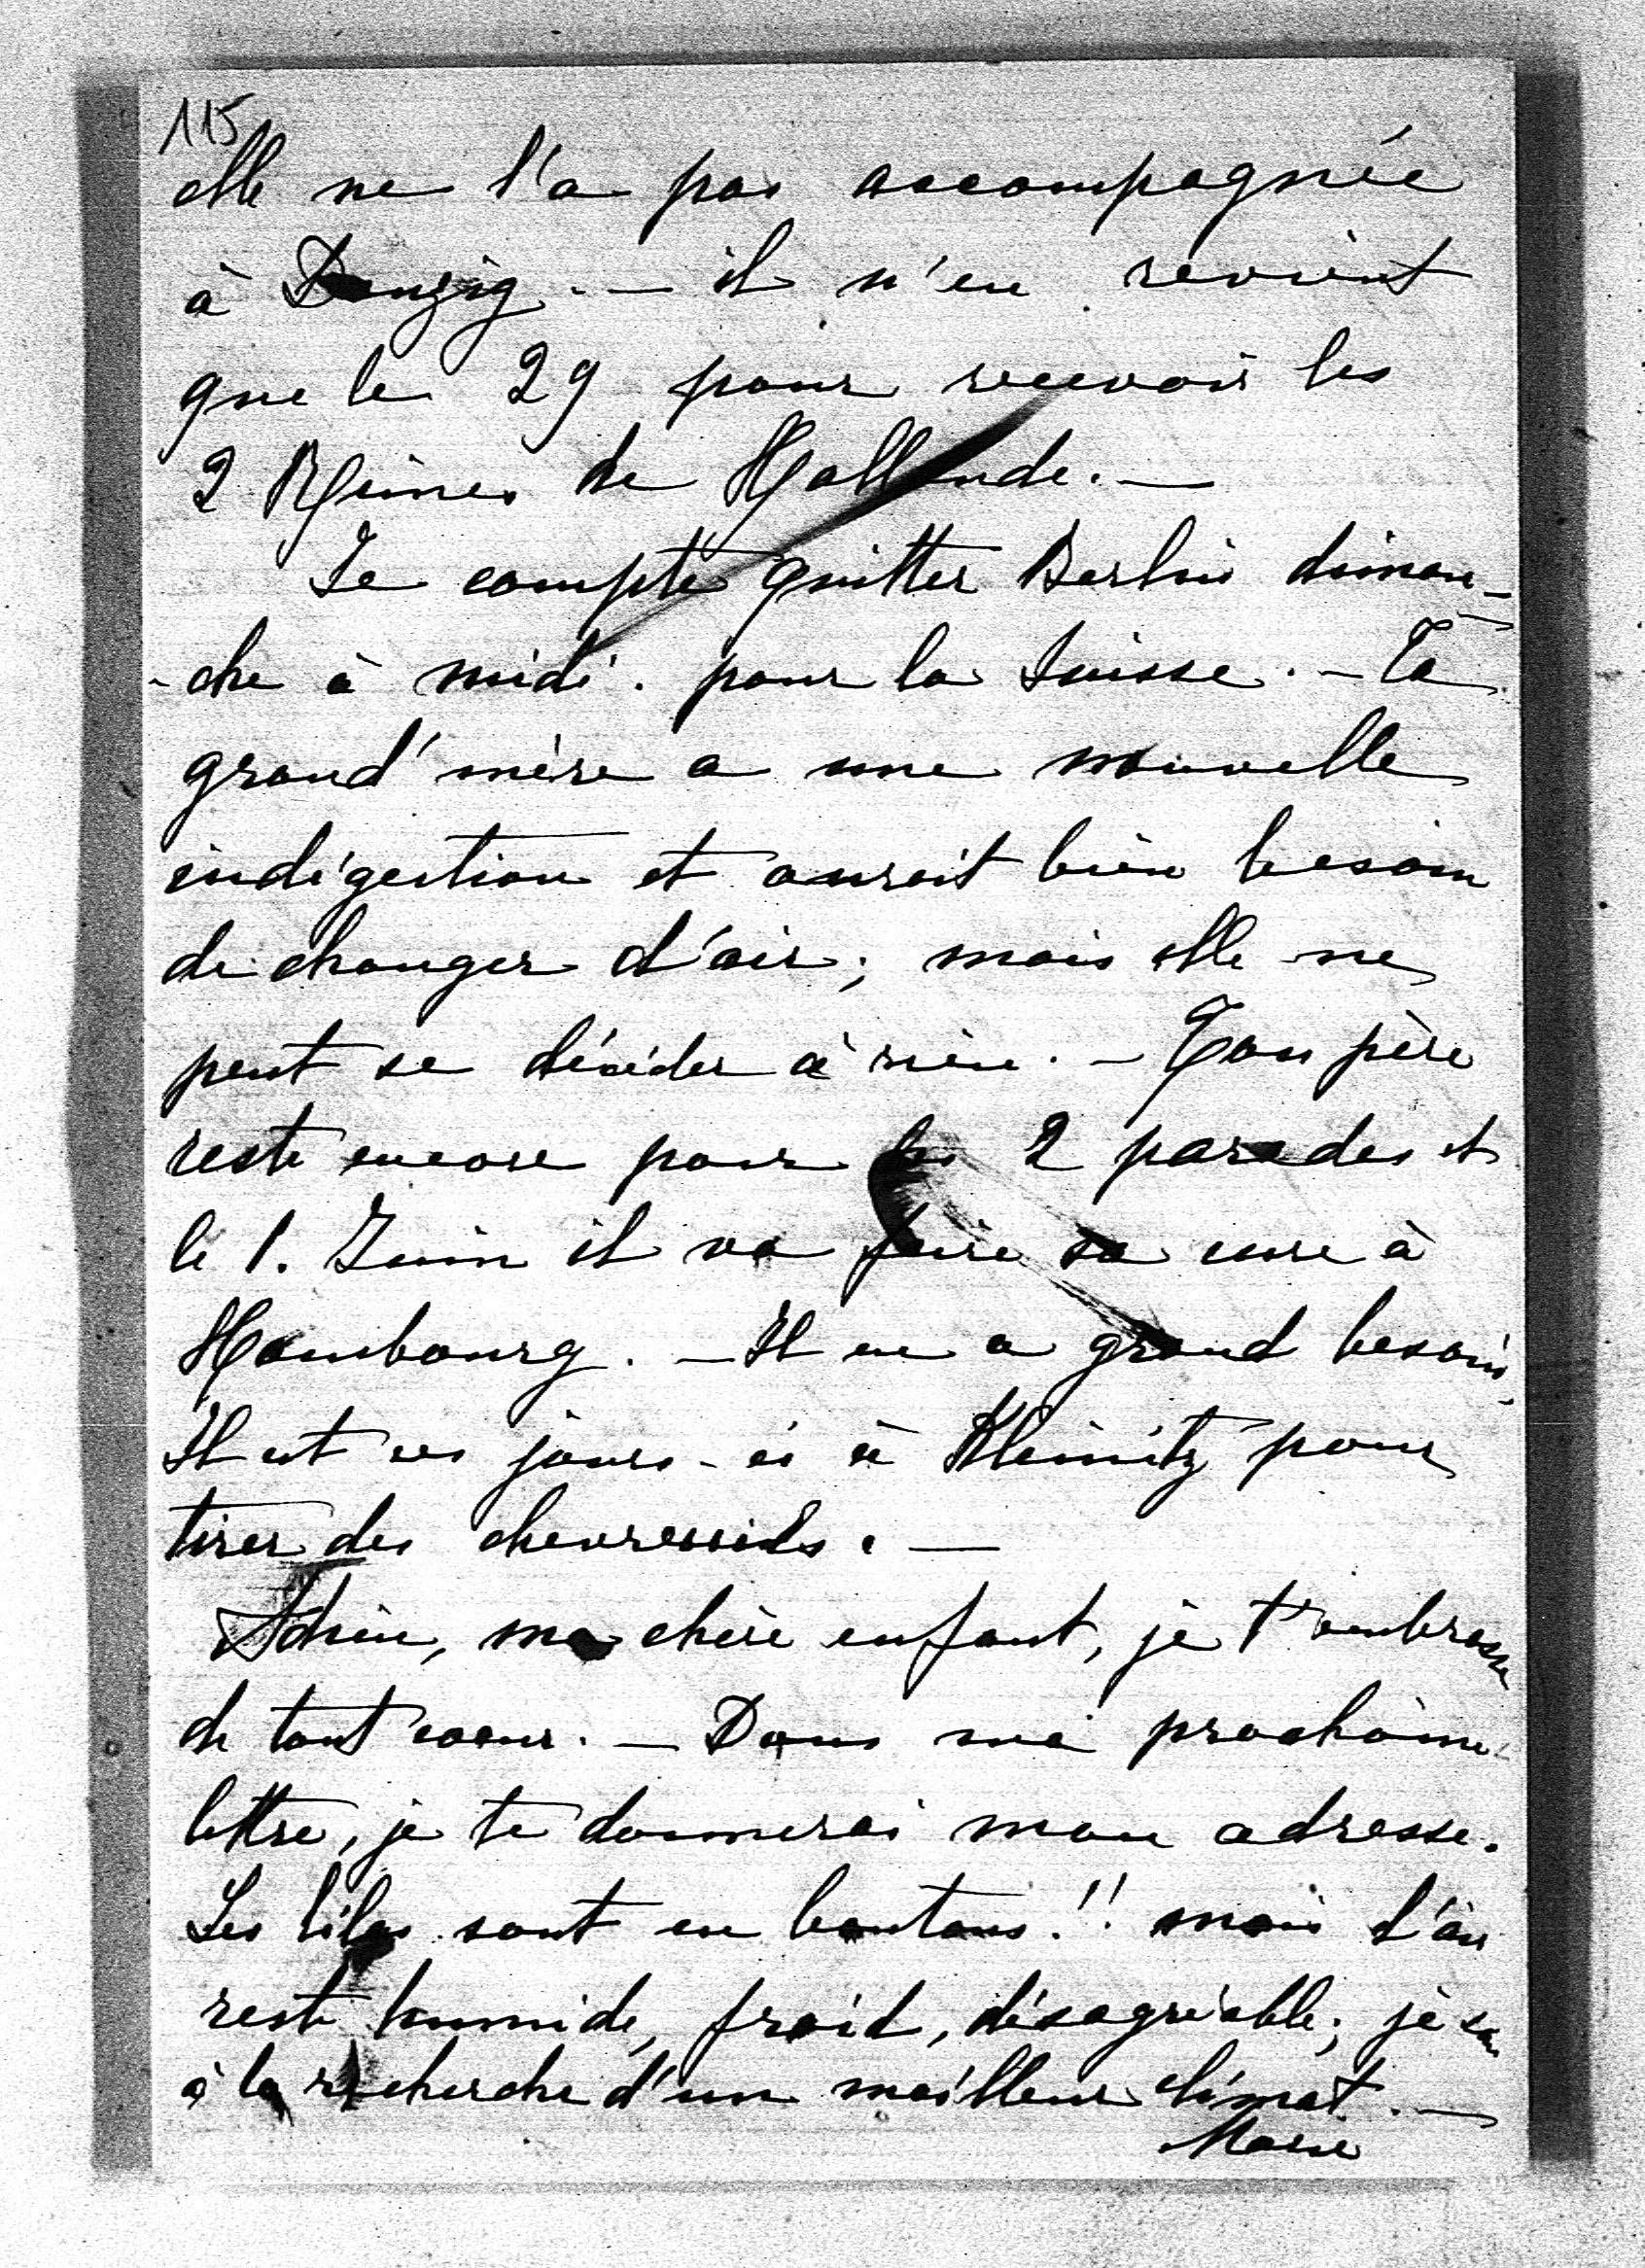 115
elle ne l'a pas accompagnée
à Danzig. — il n'en revient
que le 29 pour recevoir les
2 Reines de Hollande. —
Je compte quitter Berlin diman-
-che à midi. pour la Suisse. — Ta
grand'mère a une nouvelle
indigestion et aurait bien besoin
de changer d'air; mais elle ne
peut se décider à rien. — Ton père
reste encore pour les 2 parades et
le 1. Juin il va faire sa cure à
Hombourg. — Il en a grand besoin.
Il est ces jours-ci à Kleinitz pour
tirer des chevreuils. —
Adieu, ma chère enfant, je t'embrasse
de tout coeur. — Dans ma prochaine
lettre, je te donnerai mon adresse.
Les lilas sont en boutons!! mais l'air
reste humide, froid, désagréable; je
à la recherche d'un meilleur climat. —
Marie